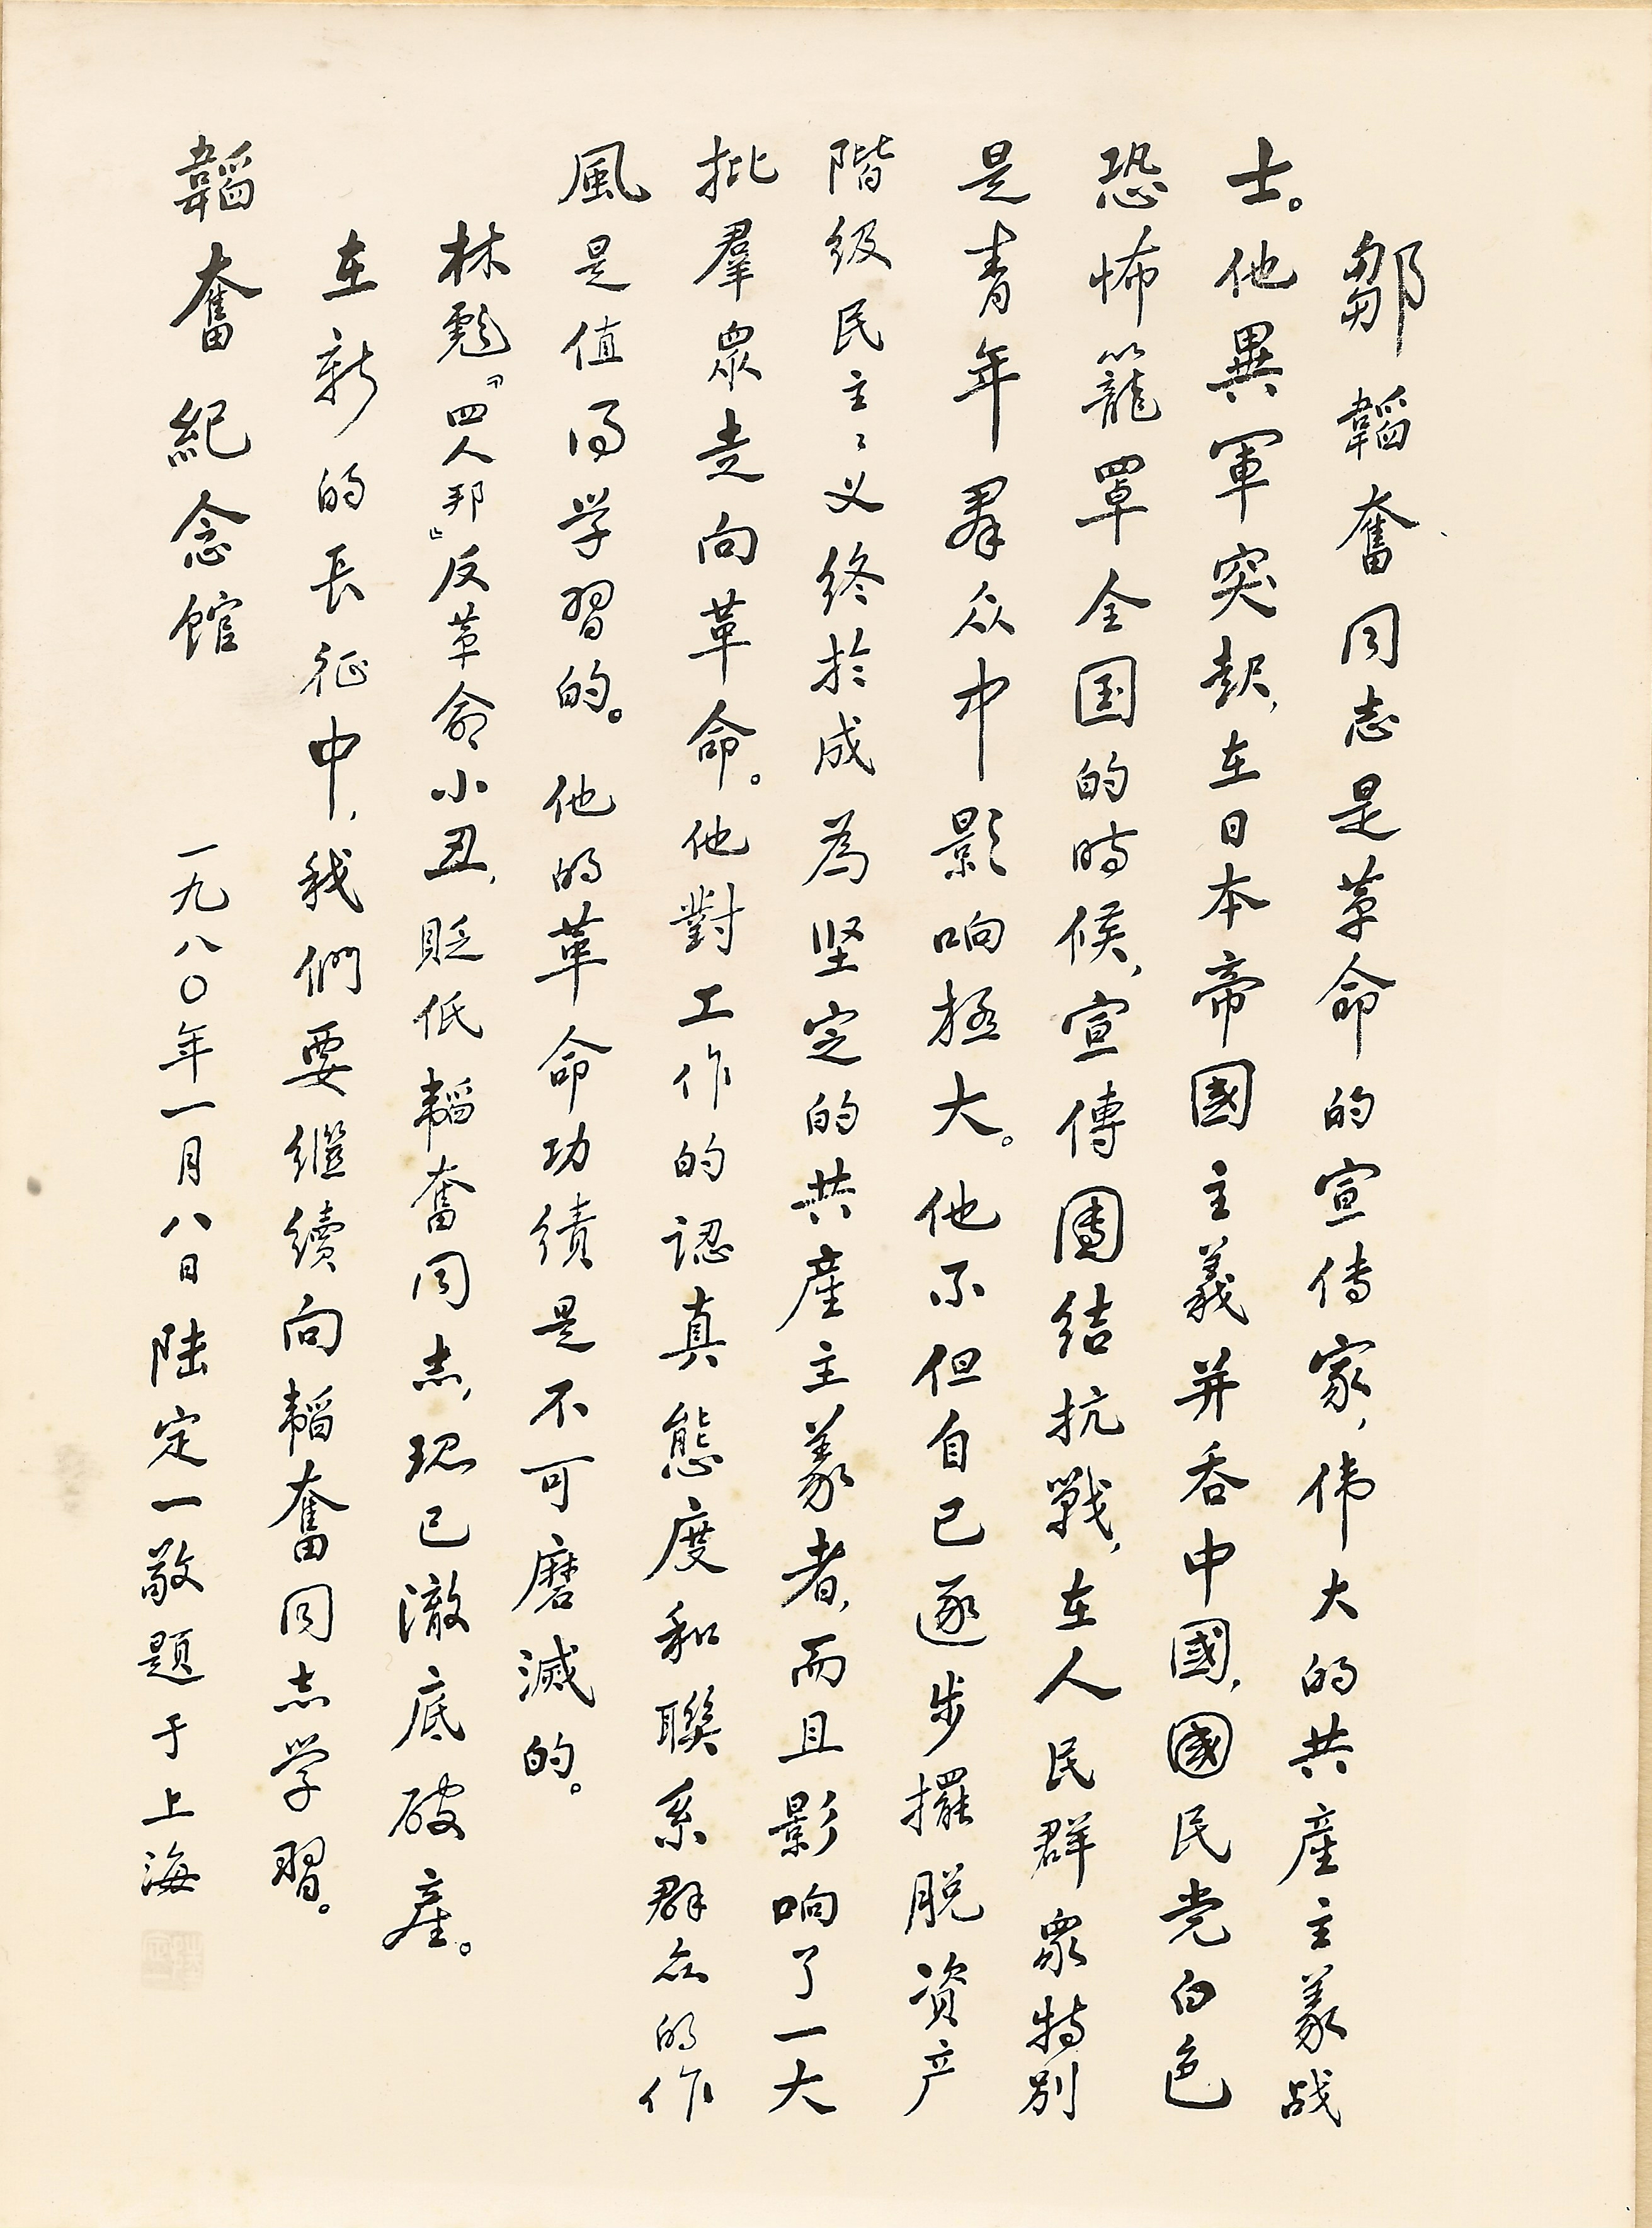 鄒韜奮同志是革命的宣传家，伟大的共產主義战
士。他異軍突起，在日本帝國主義并吞中國，國民党白色
恐怖籠罩全国的時候，宣傳團结抗戰，在人民群眾特别
是青年群众中影响极大。他不但自己逐步擺脱资产
階级民主主义终於成為坚定的共產主義者，而且影响了一大
批羣眾走向革命。他對工作的認真態度和聯系群众的作
風是值得学習的。他的革命功绩是不可磨滅的。
林彪“四人邦”反革命小丑，貶低韜奮同志，现已澈底破產。
在新的長征中，我們要继續向韜奮同志学習。
韜奮紀念馆
一九八〇年一月八日陆定一敬題于上海